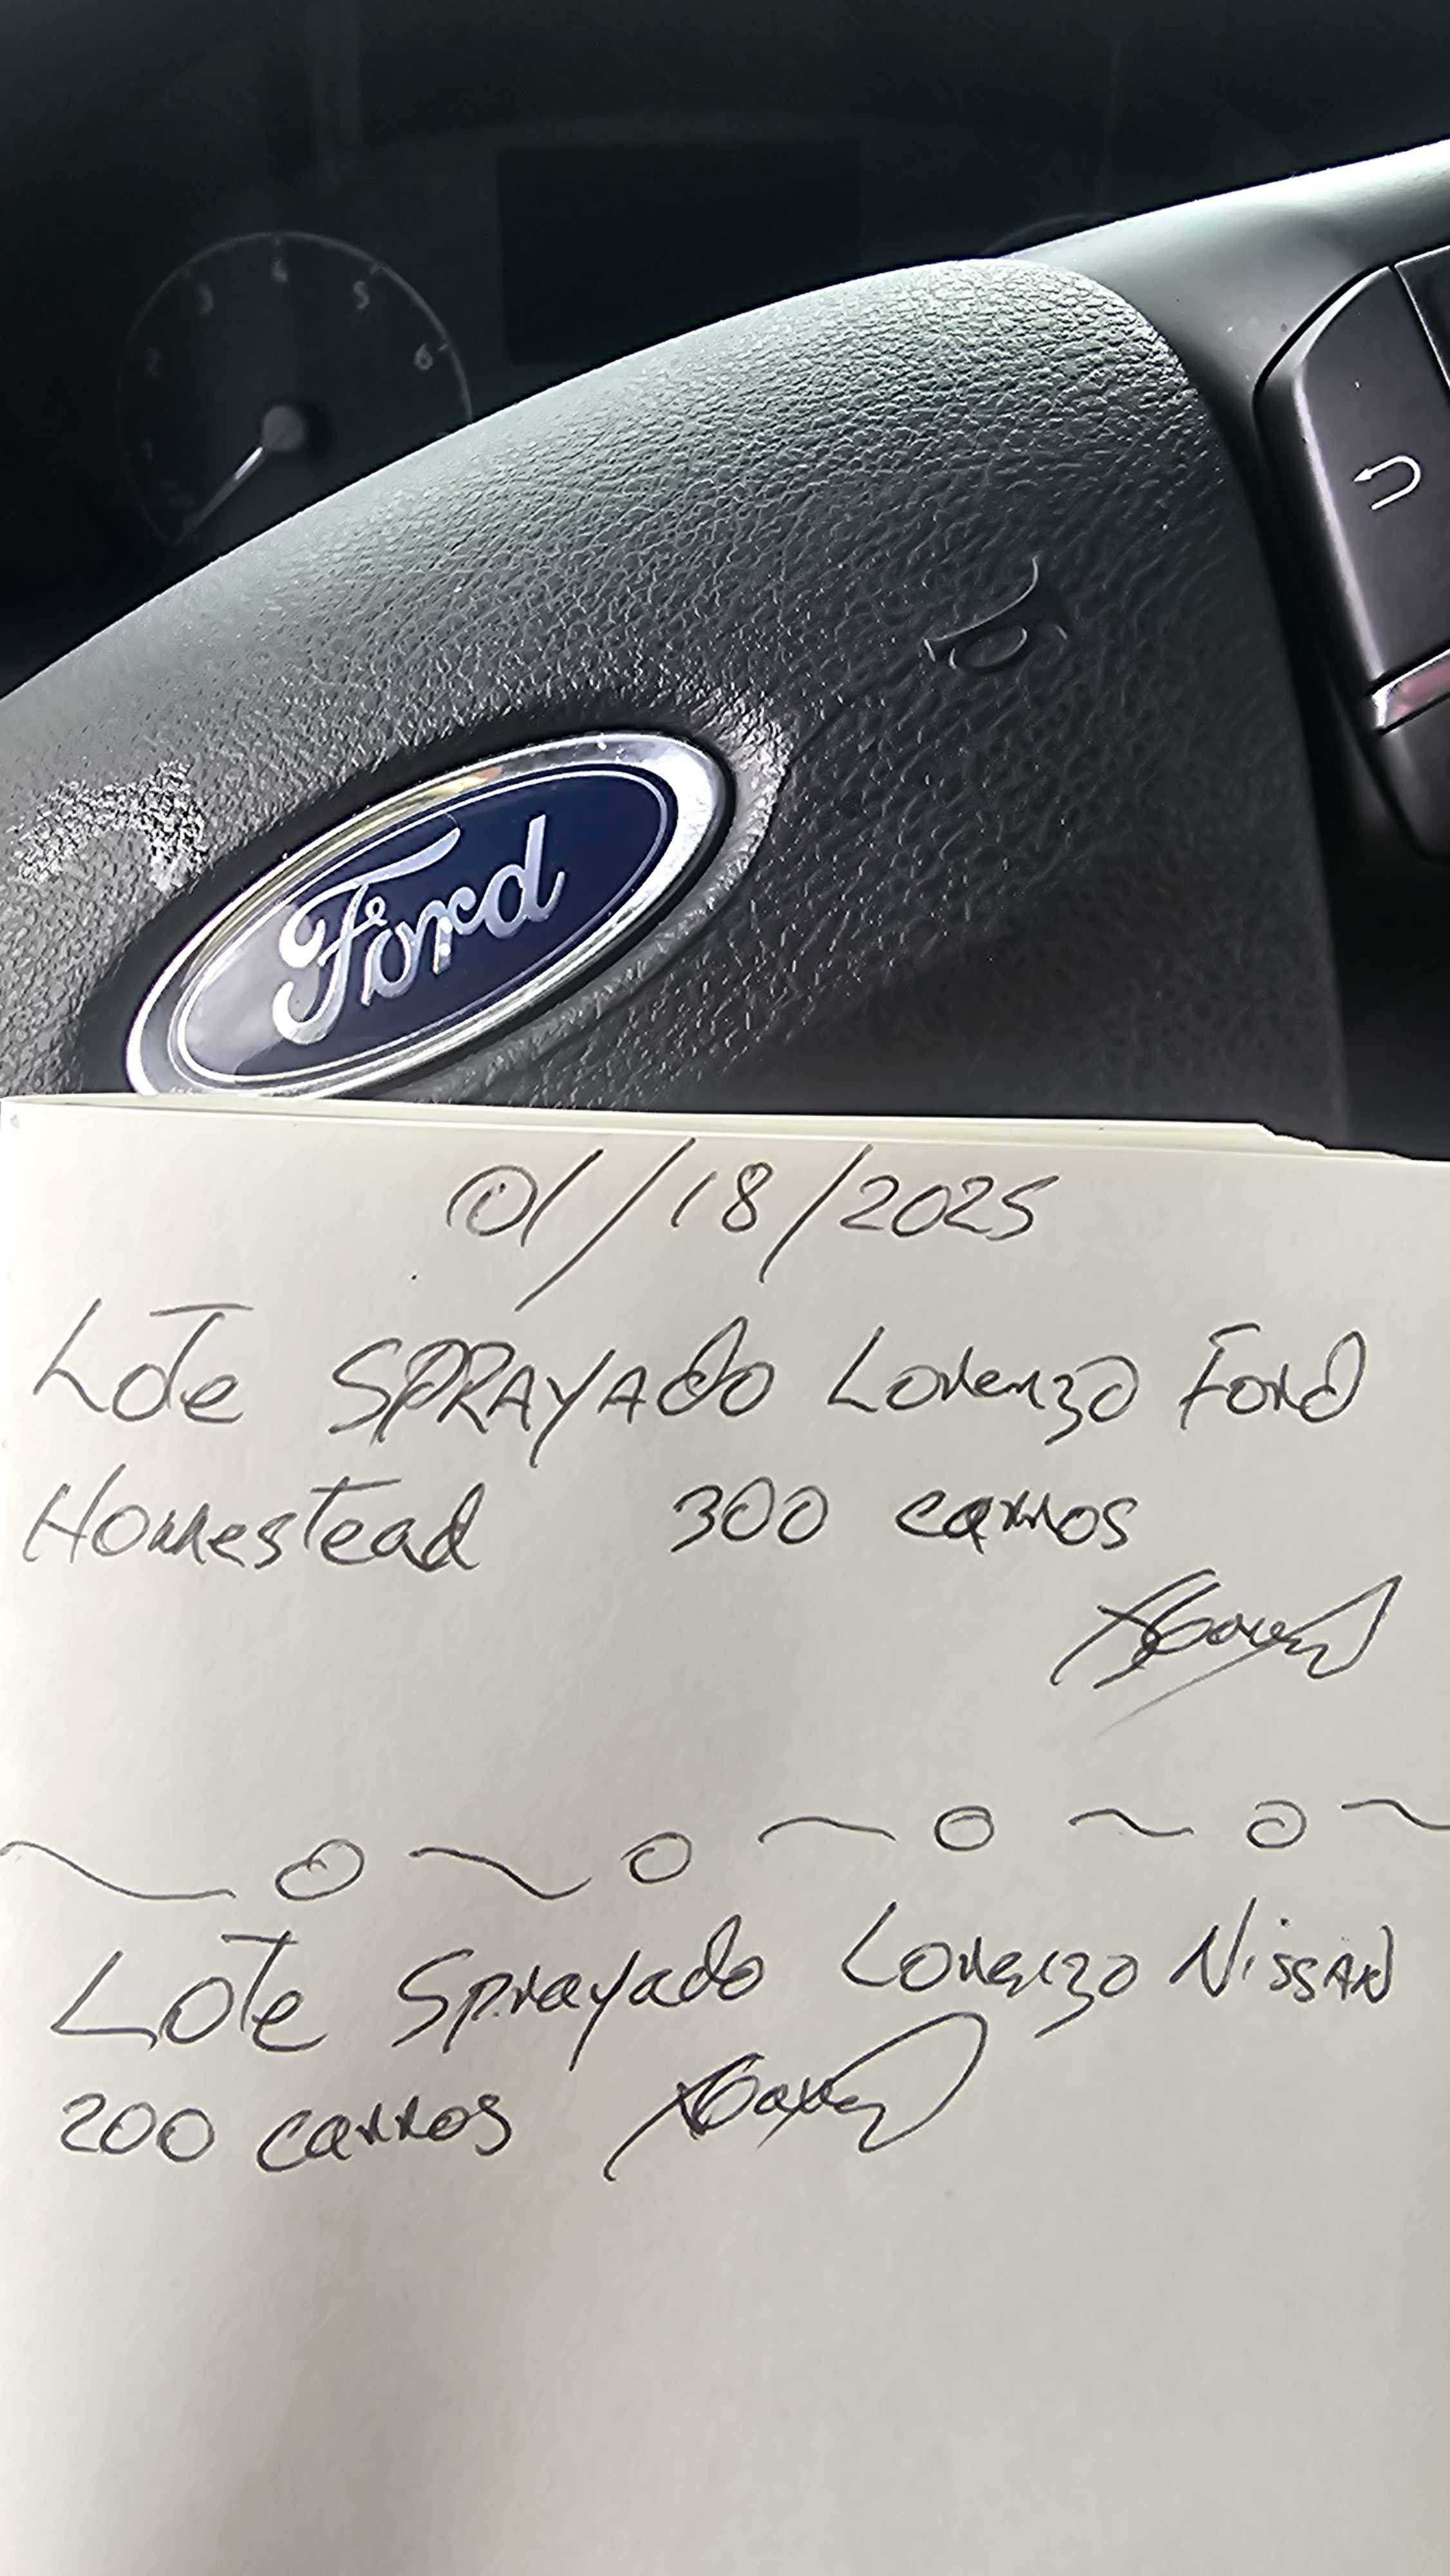 3
4
5
6
Ford
01/18/2025
Lote SPRAYAdo Lorenzo Ford
Homestead 300 carros
Lote Sprayado Lorenzo Nissan
200 carros